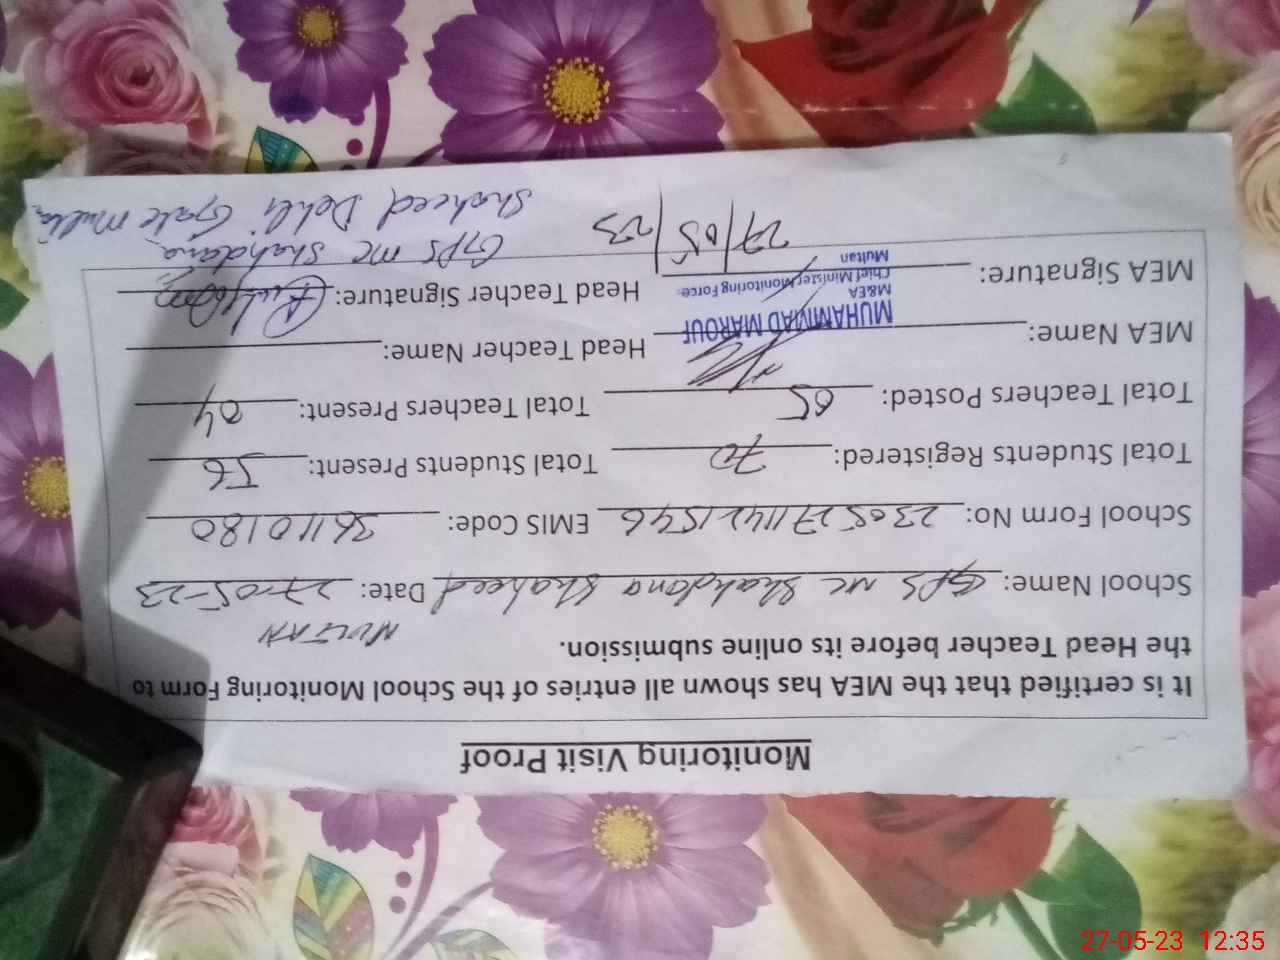 Monitoring Visit Proof
It is certified that the MEA has shown all entries of the School Monitoring Form to
the Head Teacher before its online submission.
MULTAN
School Name: GPS MC Shahdana Shaheed Date: 27-05-23
School Form No: 23052711421546 EMIS Code: 36110180
Total Students Registered: 70 Total Students Present: 56
Total Teachers Posted: 05 Total Teachers Present: 04
MEA Name: Head Teacher Name:
MUHAMMAD MAROUF
M&EA
Chief Minister Monitoring Force
Multan
MEA Signature: Head Teacher Signature:
27/05/23
GPS MC Shahdana
Shaheed Dehli Gate Multan
27-05-23 12:35